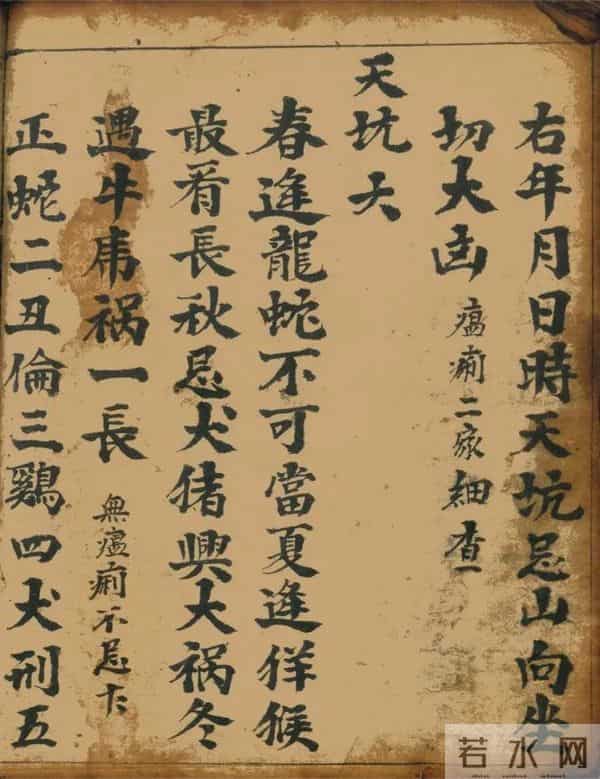 右年月日時天坑忌山向坐
切大凶 瘟痢二家細查
天坑
春逢龍蛇不可當夏逢徉猴
最看長秋忌犬猪興大祸冬
遇牛虎祸一長 無瘟痢不忌
正蛇二丑倫三鷄四犬刑五
若水网